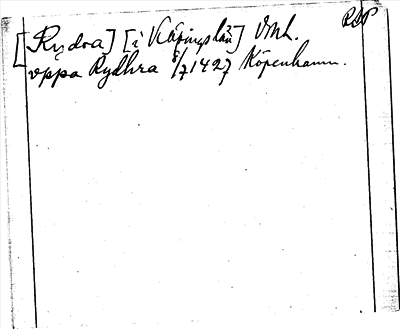 RAP
[Rydra] [i Köpingslän] Vml.
vppa Rydhra 8/7 1427 Köpenhamn.